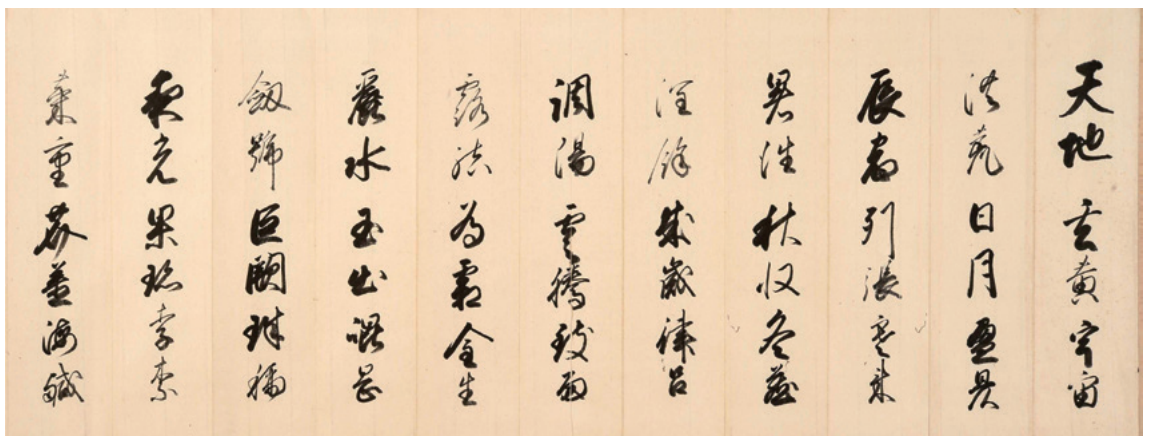 天地玄黄宇宙
洪荒日月盈昃
辰宿列張寒来
暑往秋収冬蔵
閏餘成歲律呂
調陽雲騰致雨
露結為霜金生
麗水玉出崐岡
劒號巨闕珠稱
夜光果珎李柰
菜重芥薑海鹹